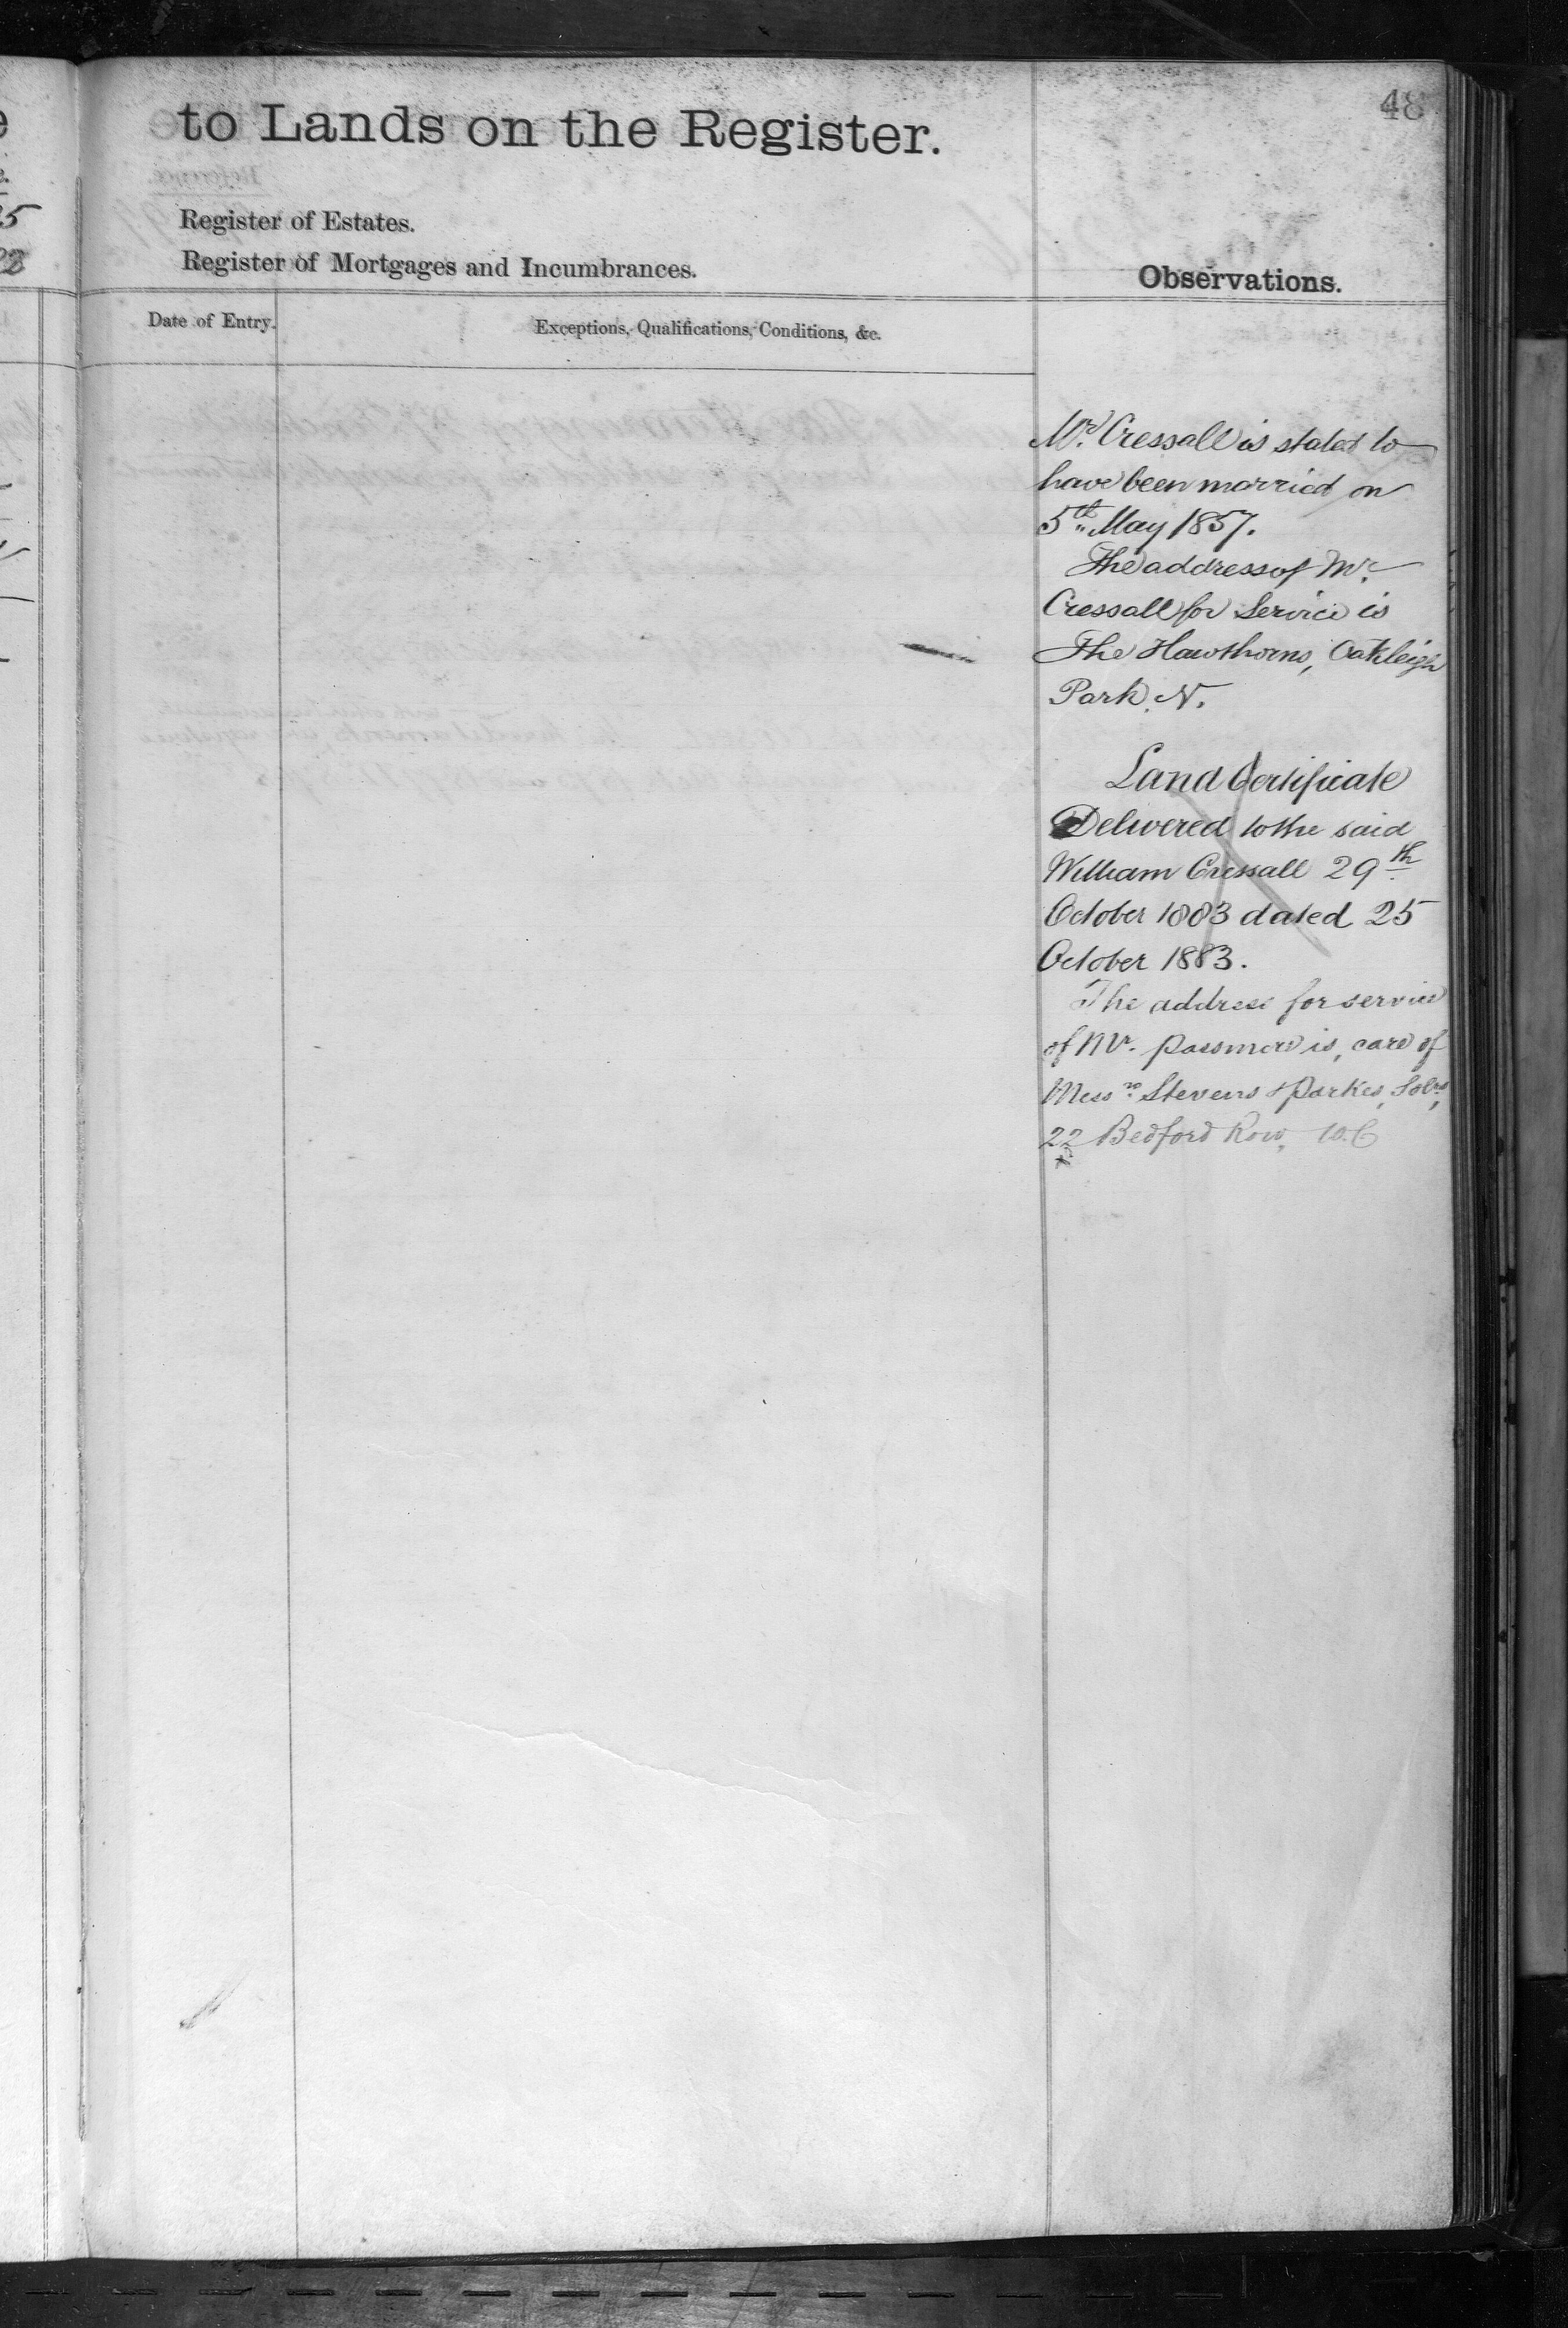 48
to Lands on the Register.
Register of Estates.
Register of Mortgages and Incumbrances.
Observations.
Date of Entry.
Exceptions, Qualifications, Conditions, &c.
Mr. Cressall is stated to
have been married on
5th May 1857.
The address of Mr.
Cressall for Service is
The Hawthorns, Oakleigh
Park. N.
Land Certificate
Delivered to the said
William Cressall 29th
October 1883 dated 25
October 1883.
The address for service
of Mr. Passmore is, care of
Messrs. Stevens & Parkes, Solrs,
22 Bedford Row, W.C